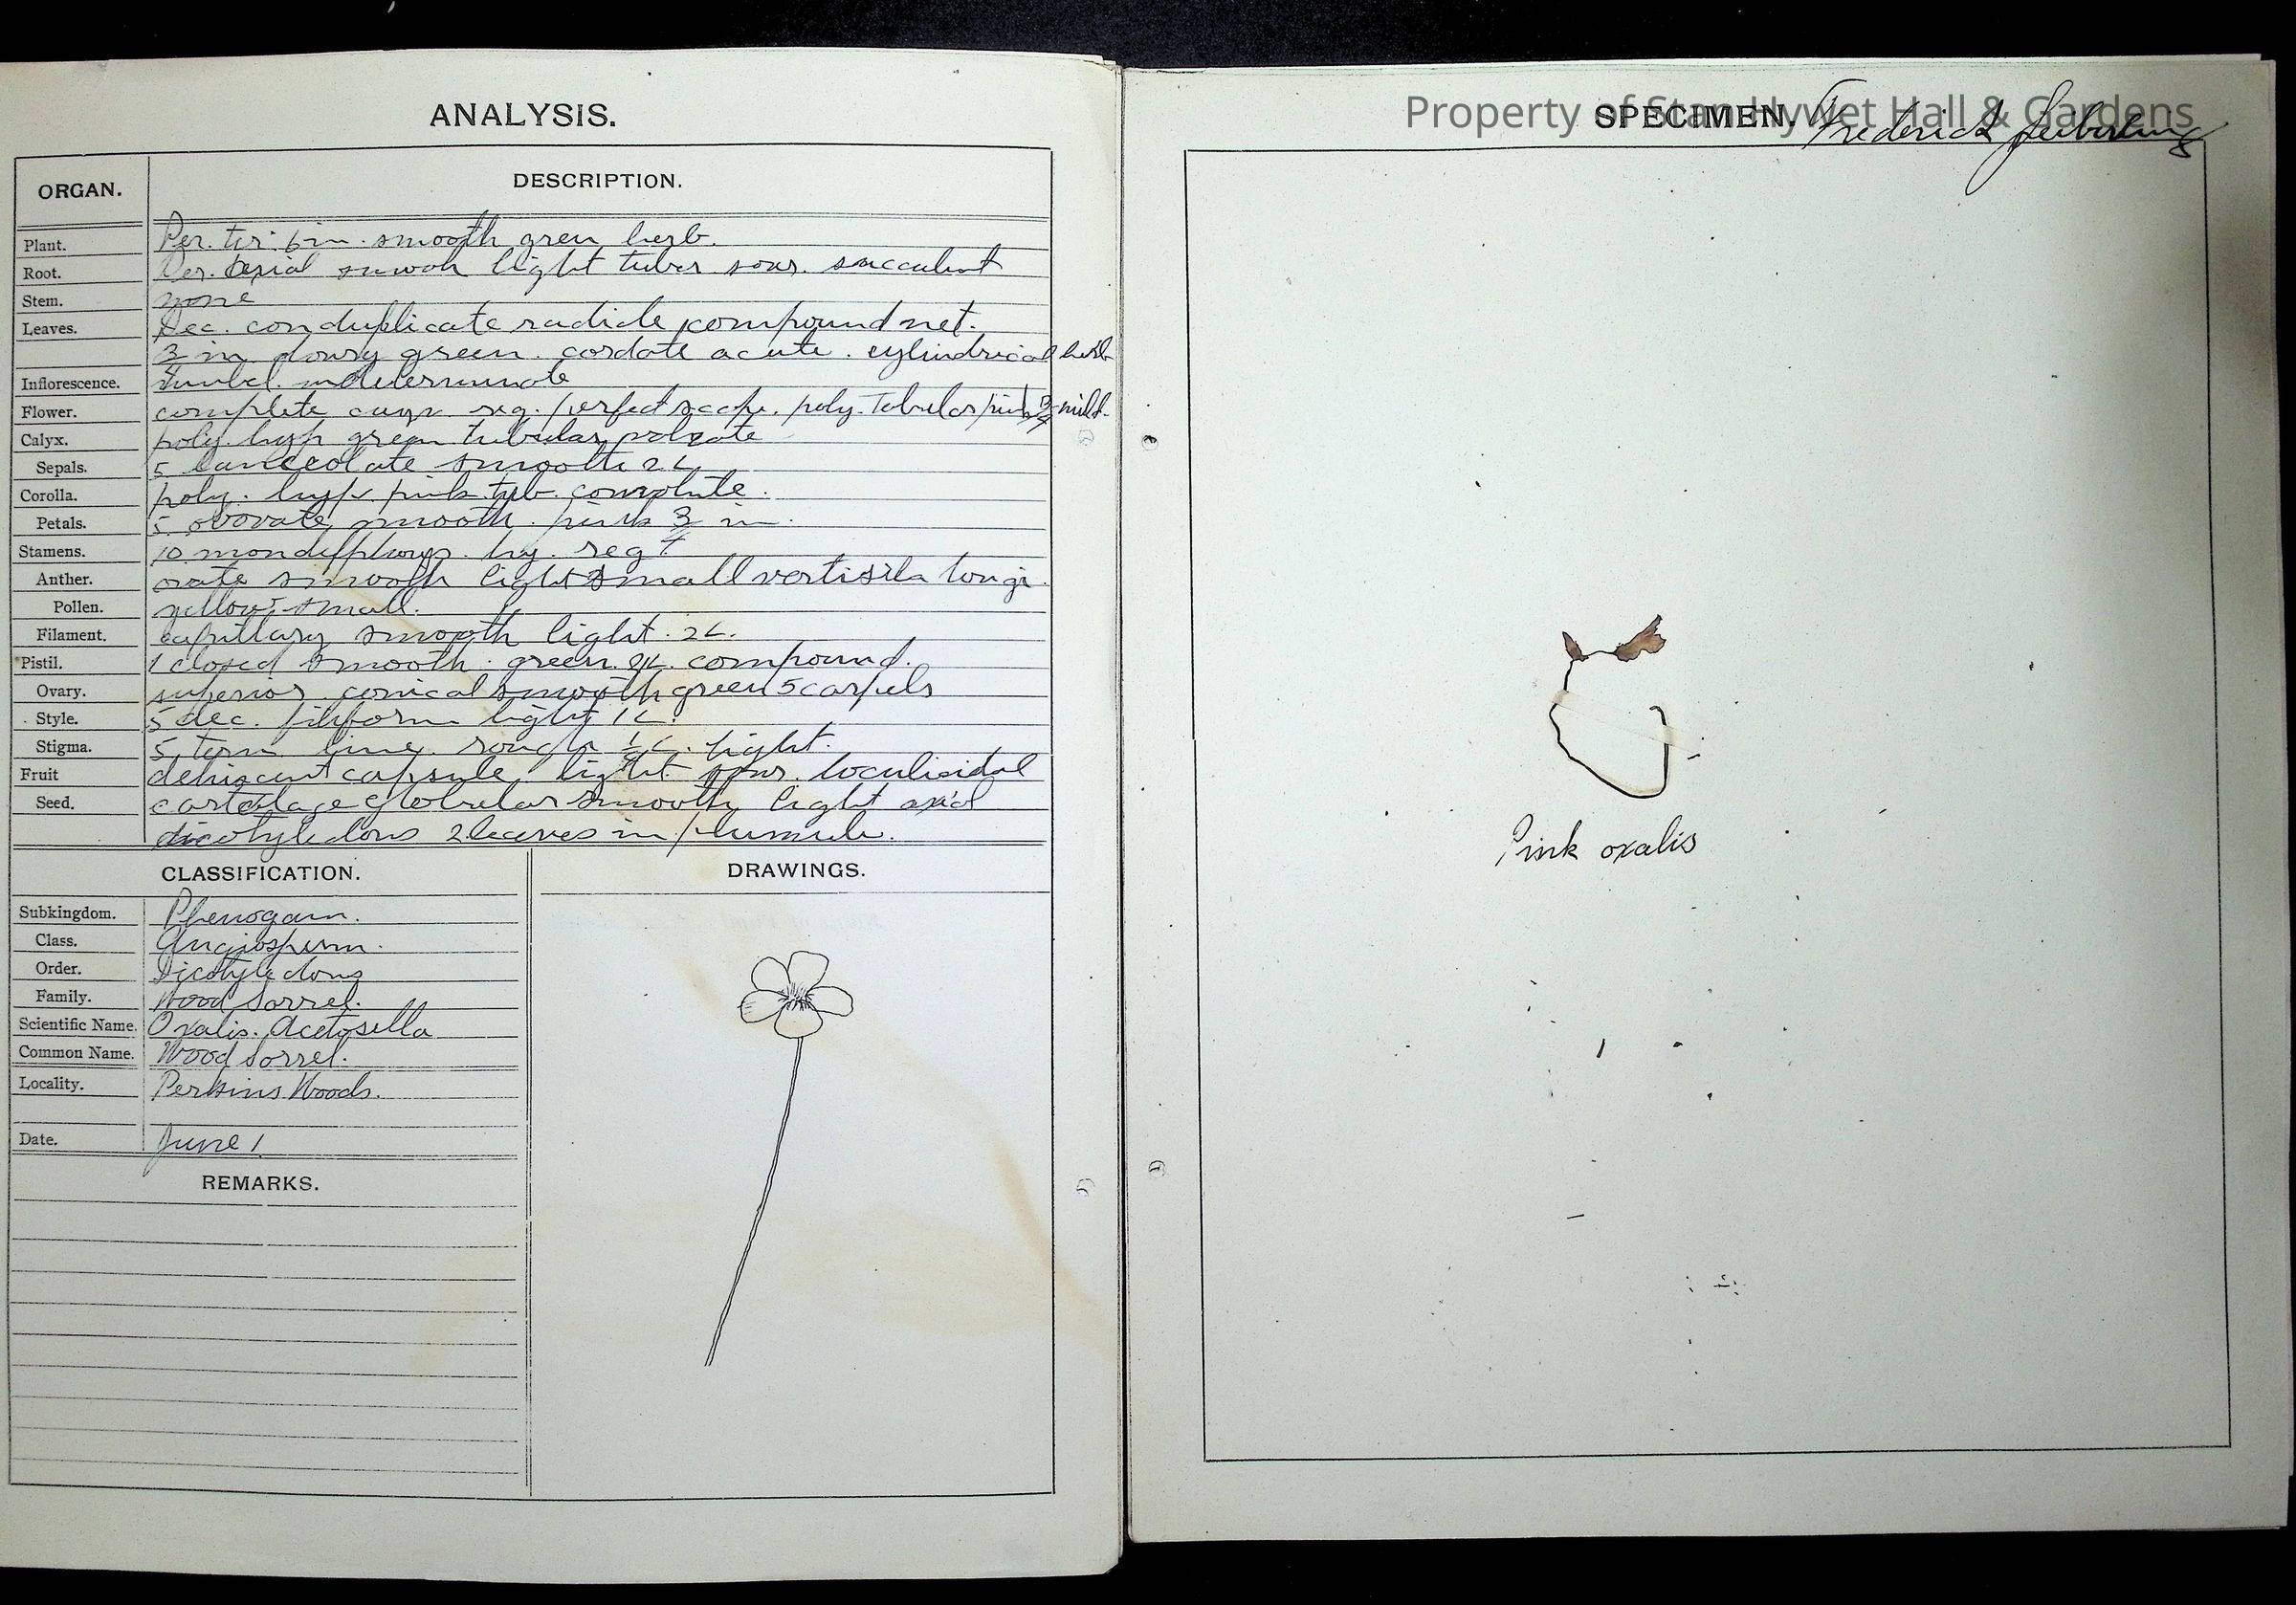 ANALYSIS.
ORGAN. DESCRIPTION.
Plant. Per. ter. 6 in. smooth green herb.
Root. Per. light tuber sour. succulent
Stem. none
Leaves. Dec. conduplicate radicle compound net.
3/4 in downy green. cordate acute. cylindrical herb
Inflorescence. Umbel. indeterminate
Flower. complete reg. perfect scape. poly. Tubular pink 3/4 mild.
Calyx. poly. hyp green tubular
Sepals. 5 lanceolate smooth 2L
Corolla. poly. hyp pink tub. convolute.
Petals. 5 obovate smooth. pink 3/4 in.
Stamens. 10 hy. reg.
Anther. ovate smooth light small longi.
Pollen. yellow small.
Filament. capillary smooth light. 2L.
Pistil. 1 closed smooth. green. 2L. compound.
Ovary. superior. conical smooth green 5 carpels
Style. 5 dec. filiform light 1L.
Stigma. 5 term rough light.
Fruit dehiscent capsule, light loculicidal
Seed. cartelage globular smooth light axial
dicotyledons 2 leaves in plumule.
CLASSIFICATION.
Subkingdom. Phenogam.
Class. Angiosperm.
Order. Dicotyledons
Family. Wood Sorrel.
Scientific Name. Oxalis. Acetosella
Common Name. Wood Sorrel.
Locality. Perkins Woods.
Date. June 1.
REMARKS.
DRAWINGS.
SPECIMEN. Frederick Seiberling
Property of Stan Hywet Hall & Gardens
Pink oxalis